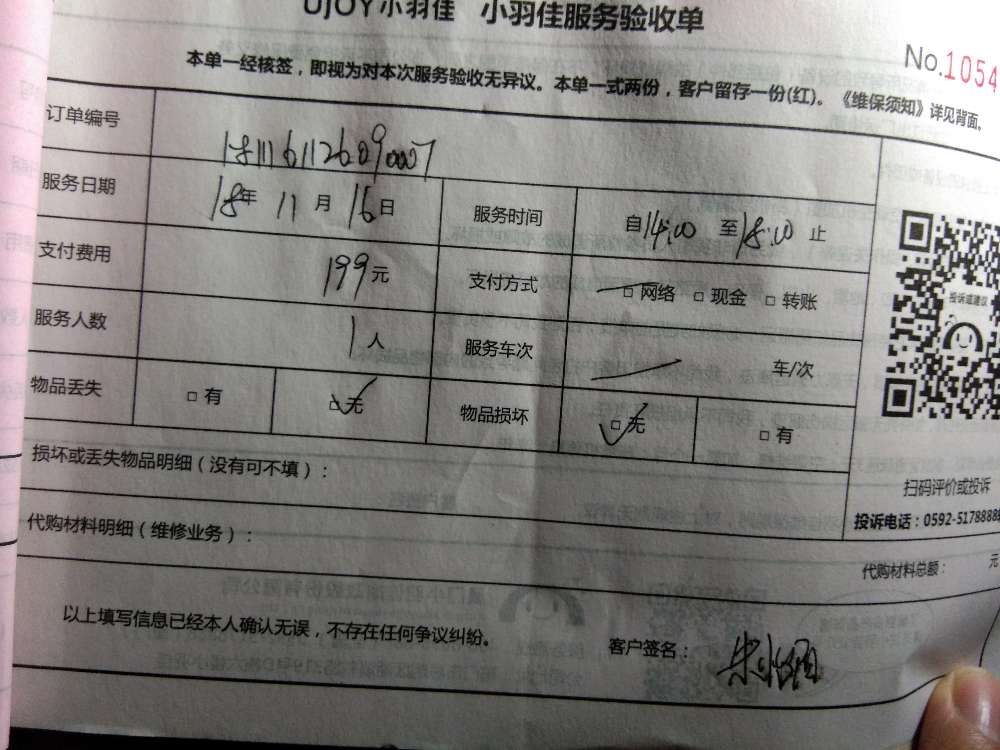 UJOY小羽佳 小羽佳服务验收单
No.1054
本单一经核签，即视为对本次服务验收无异议。本单一式两份，客户留存一份(红)。《维保须知》详见背面。
订单编号 1811161126090007
服务日期 18年 11月 16日 服务时间 自14:00 至18:00 止
支付费用 199元 支付方式 □ 网络 □ 现金 □ 转账
服务人数 1人 服务车次 车/次
物品丢失 □ 有 □ 无 物品损坏 □ 无 □ 有
投诉或建议
扫码评价或投诉
投诉电话：0592-5178888
损坏或丢失物品明细（没有可不填）：
代购材料明细（维修业务）：
代购材料总额： 元
以上填写信息已经本人确认无误，不存在任何争议纠纷。
客户签名：